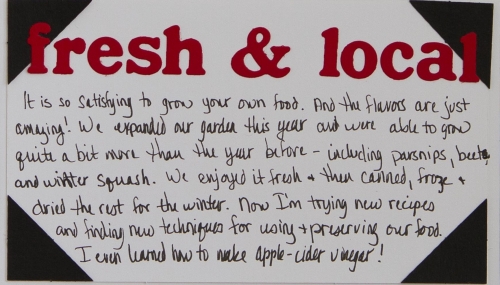 fresh & local
It is so satisfying to grow your own food. And the flavors are just
amazing! We expanded our garden this year and were able to grow
quite a bit more than the year before - including parsnips, beets,
and winter squash. We enjoyed it fresh + then canned, froze +
dried the rest for the winter. Now I'm trying new recipes
and finding new techniques for using + preserving our food.
I even learned how to make Apple-cider vinegar!